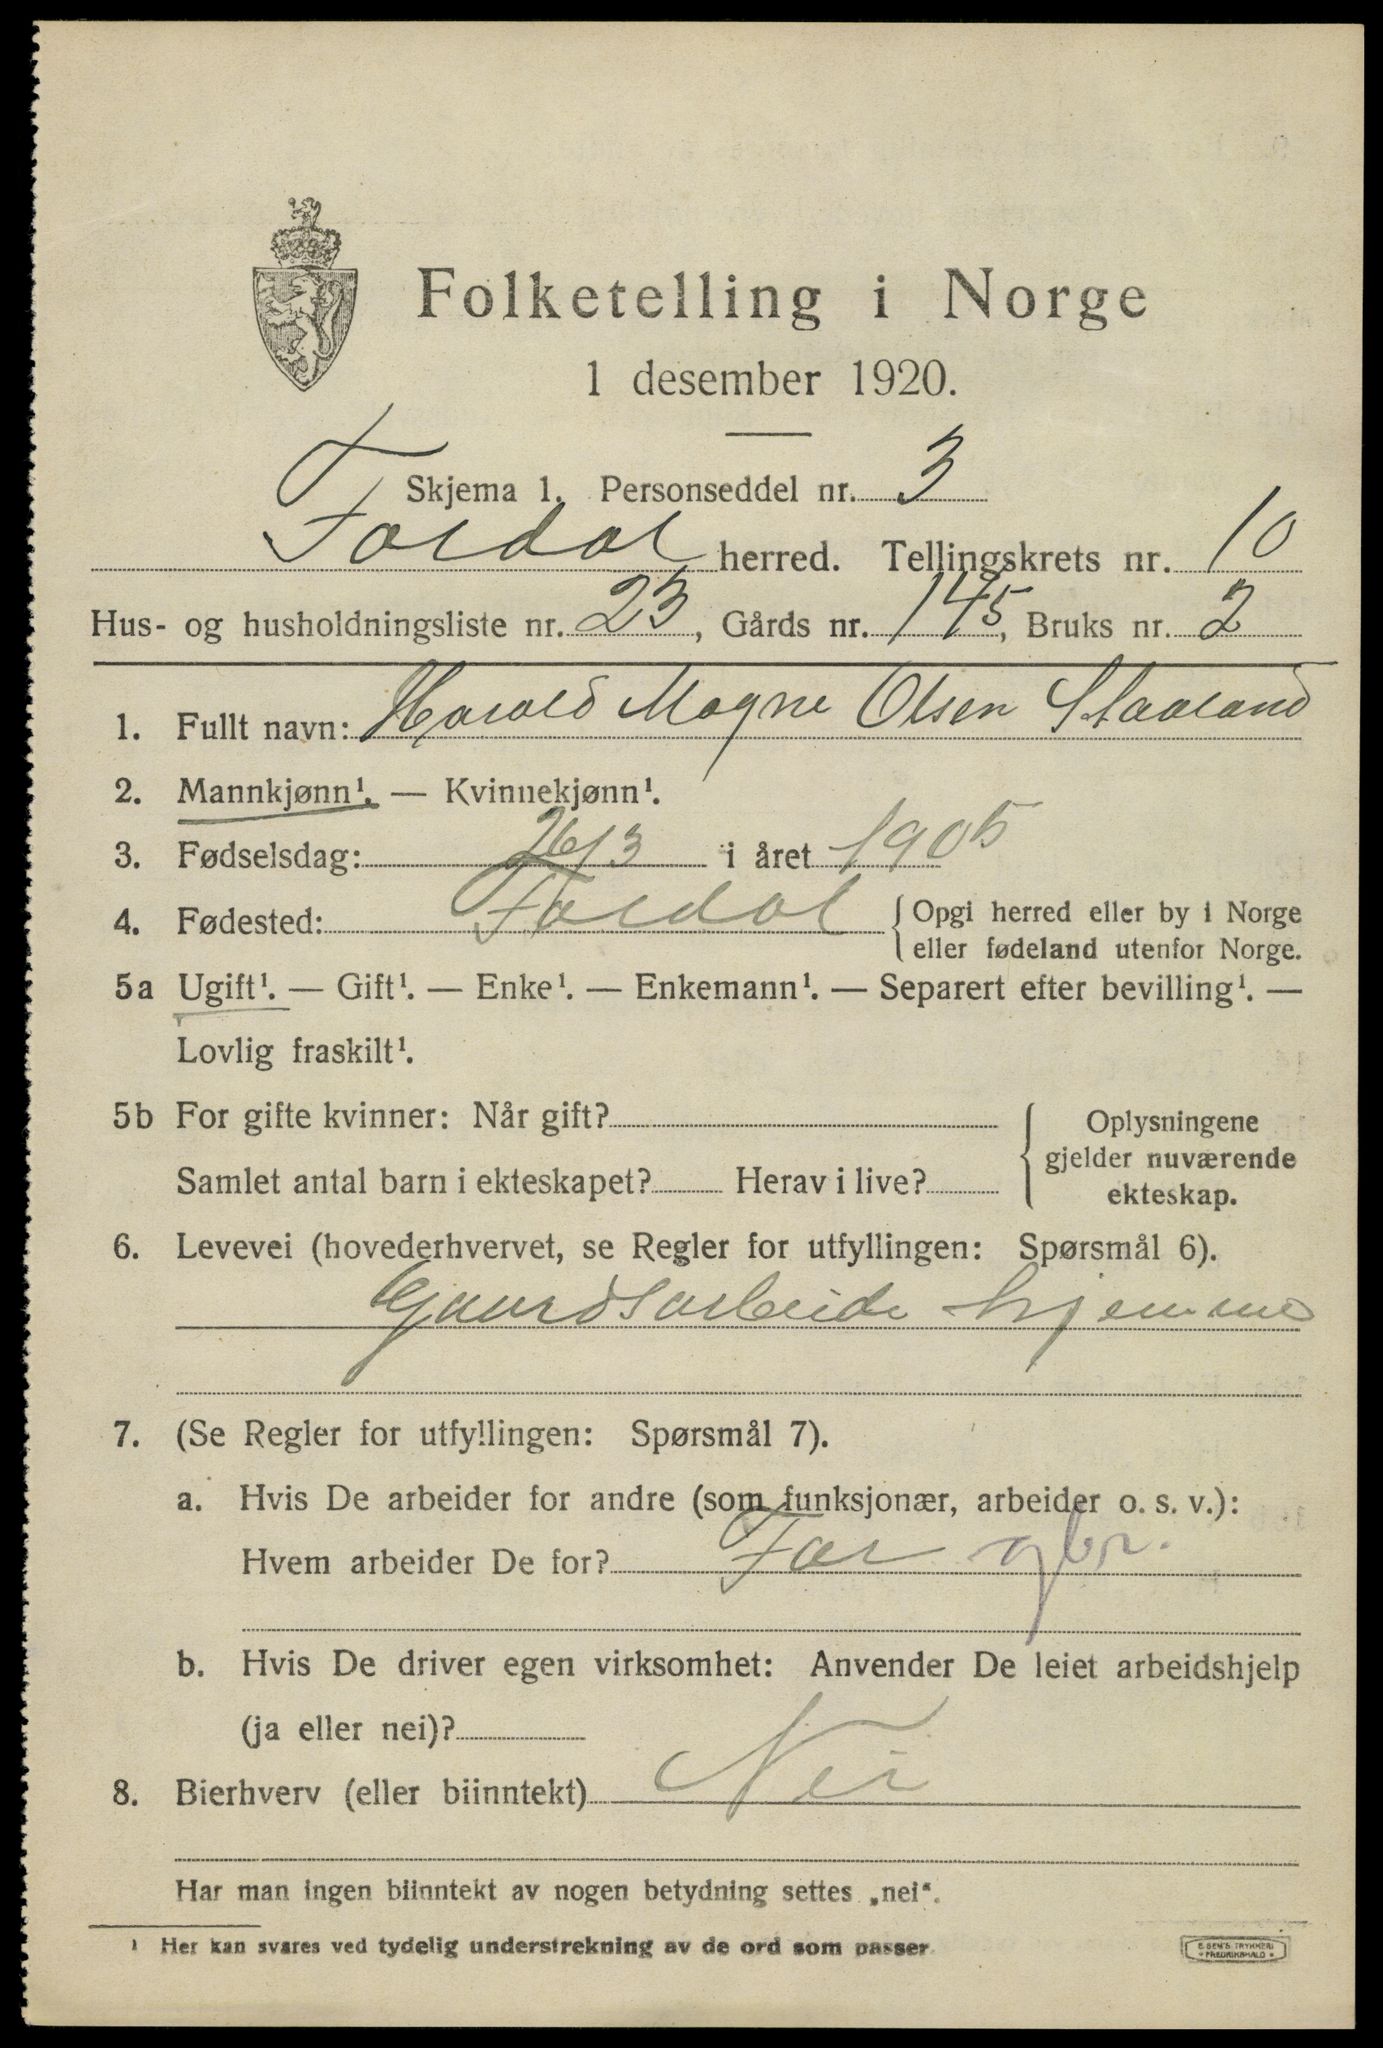 Folketelling i Norge
1 desember 1920.
Skjema 1. Personseddel nr. 3
Førdal herred. Tellingskrets nr. 10
Hus- og husholdningsliste nr. 23, Gårds nr. 145, Bruks nr. 2
1. Fullt navn: Harald Magne Olsen Staaland
2. Mannkjønn¹. — Kvinnekjønn¹.
3. Fødselsdag: 26/3 i året 1905
4. Fødested: { Opgi herred eller by i Norge
eller fødeland utenfor Norge.
5a Ugift¹. — Gift¹. — Enke¹. — Enkemann¹. — Separert efter bevilling¹. —
Lovlig fraskilt¹.
5b For gifte kvinner: Når gift? { Oplysningene
gjelder nuværende
Samlet antal barn i ekteskapet? Herav i live?
ekteskap.
6. Levevei (hovederhvervet, se Regler for utfyllingen: Spørsmål 6).
Gaardsarbeide hjemme
7. (Se Regler for utfyllingen: Spørsmål 7).
a. Hvis De arbeider for andre (som funksjonær, arbeider o. s. v.):
Hvem arbeider De for? Far gbr.
b. Hvis De driver egen virksomhet: Anvender De leiet arbeidshjelp
(ja eller nei)?
8. Bierhverv (eller biinntekt) Nei
Har man ingen biinntekt av nogen betydning settes „nei“.
¹ Her kan svares ved tydelig understrekning av de ord som passer
E. SEM'S TRYKKERI
* FREDRIKSHALD *